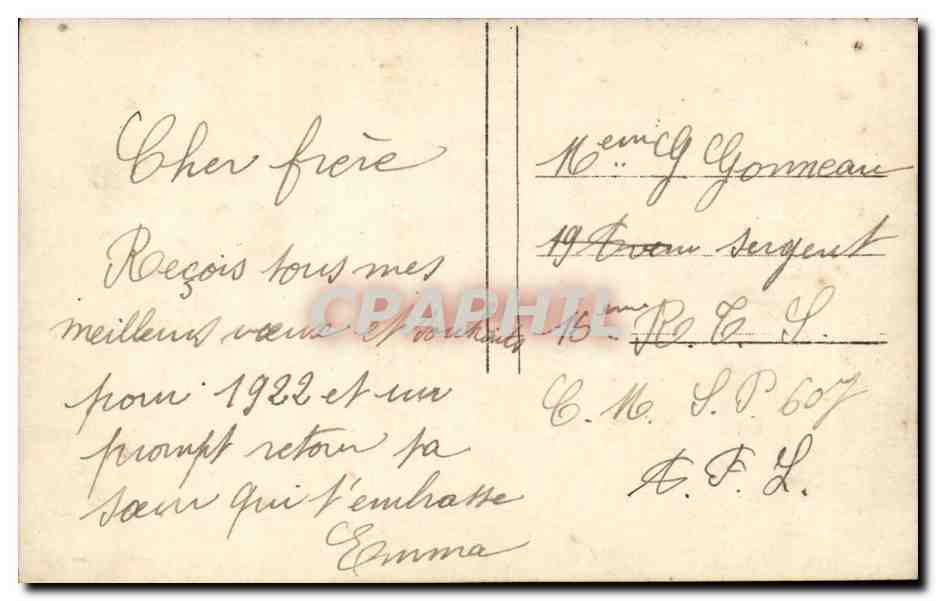 Cher frère
Reçois tous mes
meilleurs vœux et souhaits
pour 1922 et un
prompt retour ta
sœur qui t'embrasse
Emma
G Gonneau
19 sergent
15ème R. T. S.
C. M. S. P. 607
A. F. L.
CPAPHIL